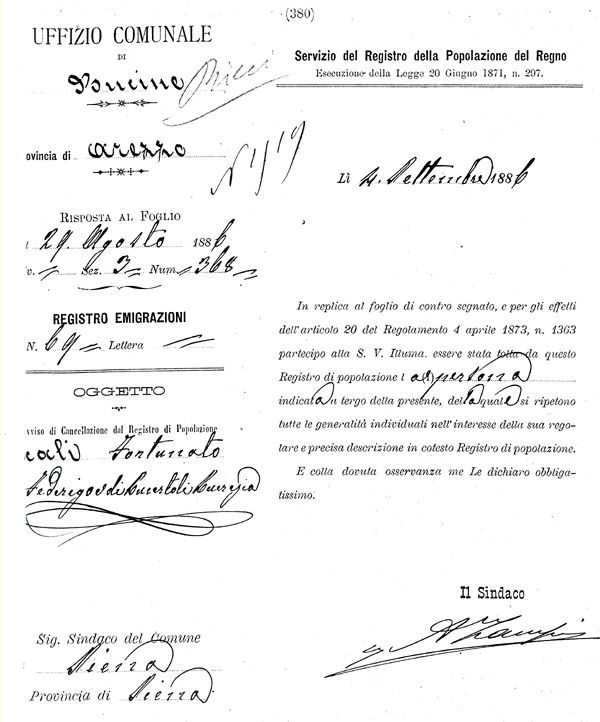 (380)
UFFIZIO COMUNALE
DI
Bucine
ovincia di Arezzo
N 119
RISPOSTA AL FOGLIO
29 Agosto 1886
v. = Sez. 3 = Num. = 368 =
REGISTRO EMIGRAZIONI
N. 69 = Lettera =
OGGETTO
vviso di Cancellazione dal Registro di Popolazione
Fortunato
Federigo di
Sig. Sindaco del Comune
Siena
Provincia di Siena
Servizio del Registro della Popolazione del Regno
Esecuzione della Legge 20 Giugno 1871, n. 297.
Lì 4. Settembre 1886
In replica al foglio di contro segnato, e per gli effetti
dell'articolo 20 del Regolamento 4 aprile 1873, n. 1363
partecipo alla S. V. Illuma. essere stata tolta da questo
Registro di popolazione l a(1) persona
indicata a tergo della presente, della quale si ripetono
tutte le generalità individuali nell'interesse della sua rego-
lare e precisa descrizione in cotesto Registro di popolazione.
E colla dovuta osservanza me Le dichiaro obbliga-
tissimo.
Il Sindaco